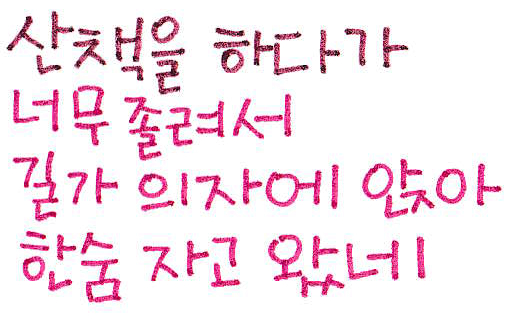 산책을 하다가
너무 졸려서
길가 의자에 앉아
한숨 자고 왔네